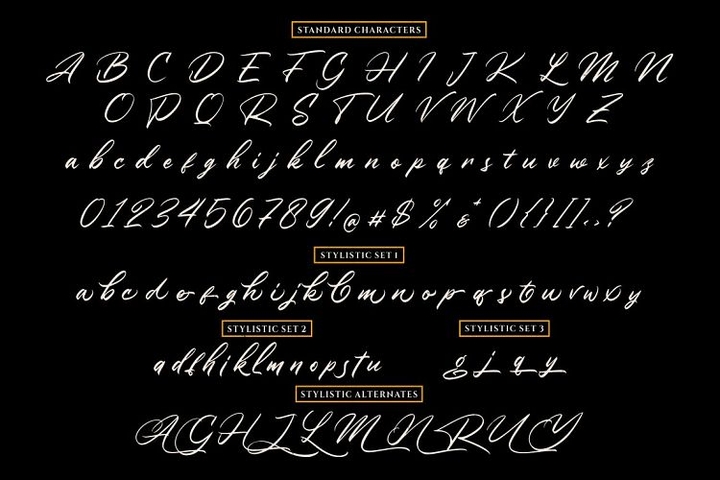 STANDARD CHARACTERS
A B C D E F G H I J K L M N
O P Q R S T U V W X Y Z
a b c d e f g h i j k l m n o p q r s t u v w x y z
0123456789!@#$%&*(){}[].,?
STYLISTIC SET 1
a b c d e f g h i j k l m n o p q r s t u v w x y
STYLISTIC SET 2 STYLISTIC SET 3
a d f h i k l m n o p s t u g j q y
STYLISTIC ALTERNATES
A G H J L M N R U Y